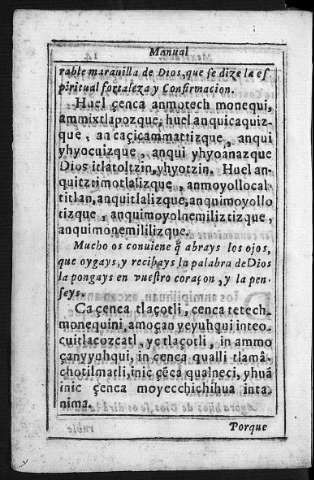 Manual
rable marauilla de Dios, que se dize la es
piritual fortaleza y Confirmacion.
Huel çenca anmotech monequi,
ammixtlapozque, huel anquicaquiz-
que, an caçicammattizque, anqui
yhyocuizque, anqui yhyoanazque
Dios itlatoltzin, yhyotzin. Huel an-
quitztimotlalizque, anmoyollocal
titlan, anquitlalizque, anquimoyollo
tizque, anquimoyolnemiliztizque,
anquimonemililizque.
Mucho os conuiene q̃ abrays los ojos,
que oygays, y recibays la palabra de Dios
la pongays en vuestro coraçon, y la pen-
seys.
Ca çenca tlaçotli, cenca tetech-
monequini, amoçan yeyuhqui inteo-
cuitlacozcatl, yc tlaçotli, in ammo
çanyyohqui, in çenca qualli tlamâ-
chotilmatli, inic çẽca qualneci, yhuã
inic çenca moyecchichihua inta-
nima.
Porque